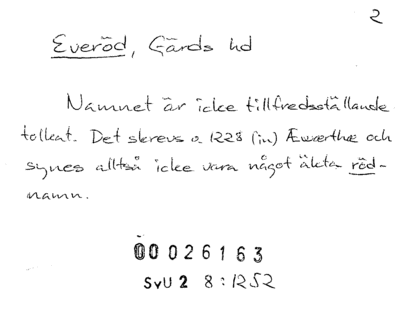 2
Everöd, Gärds hd
Namnet är icke tillfredsställande
tolkat. Det skrevs o. 1228 (in) Æwærthæ och
synes alltså icke vara något äkta röd-
namn.
00026163
SVU 2 8:1252